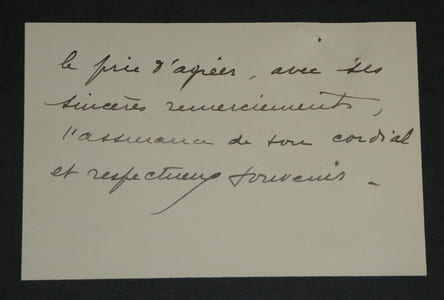 le prie d'agréer, avec ses
sincères remerciements,
l'assurance de son cordial
et respectueux souvenir.